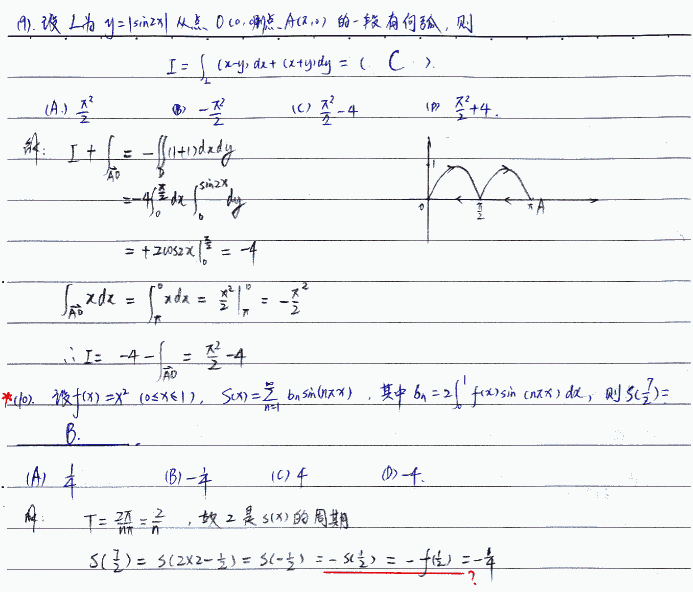 (9). 设L为 y=|sin2x| 从点 O(0,0)到点 A(π,0) 的一段有向弧, 则
I = ∫_L (x-y)dx+(x+y)dy = ( C ).
(A.) π²/2 (B) -π²/2 (C) π²/2 -4 (D) π²/2 +4.
解: I + ∫_{AO} = -∬_D (1+1)dxdy
= -4∫_0^{π/2} dx ∫_0^{sin2x} dy
= +2cos2x |_0^{π/2} = -4
1
0 π/2 π A
∫_{AO} xdx = ∫_π^0 xdx = x²/2 |_π^0 = -π²/2
∴ I = -4 - ∫_{AO} = π²/2 -4
*(10). 设f(x)=x² (0≤x≤1), S(x)=∑_{n=1}^∞ bn sin(nπx), 其中 bn=2∫_0^1 f(x)sin(nπx)dx, 则S(7/2)=
B.
(A) 1/4 (B) -1/4 (C) 4 (D) -4.
解: T = 2π/nπ = 2/n, 故 2 是 S(x) 的周期
S(7/2) = S(2×2-1/2) = S(-1/2) = -S(1/2) = -f(1/2) = -1/4
?